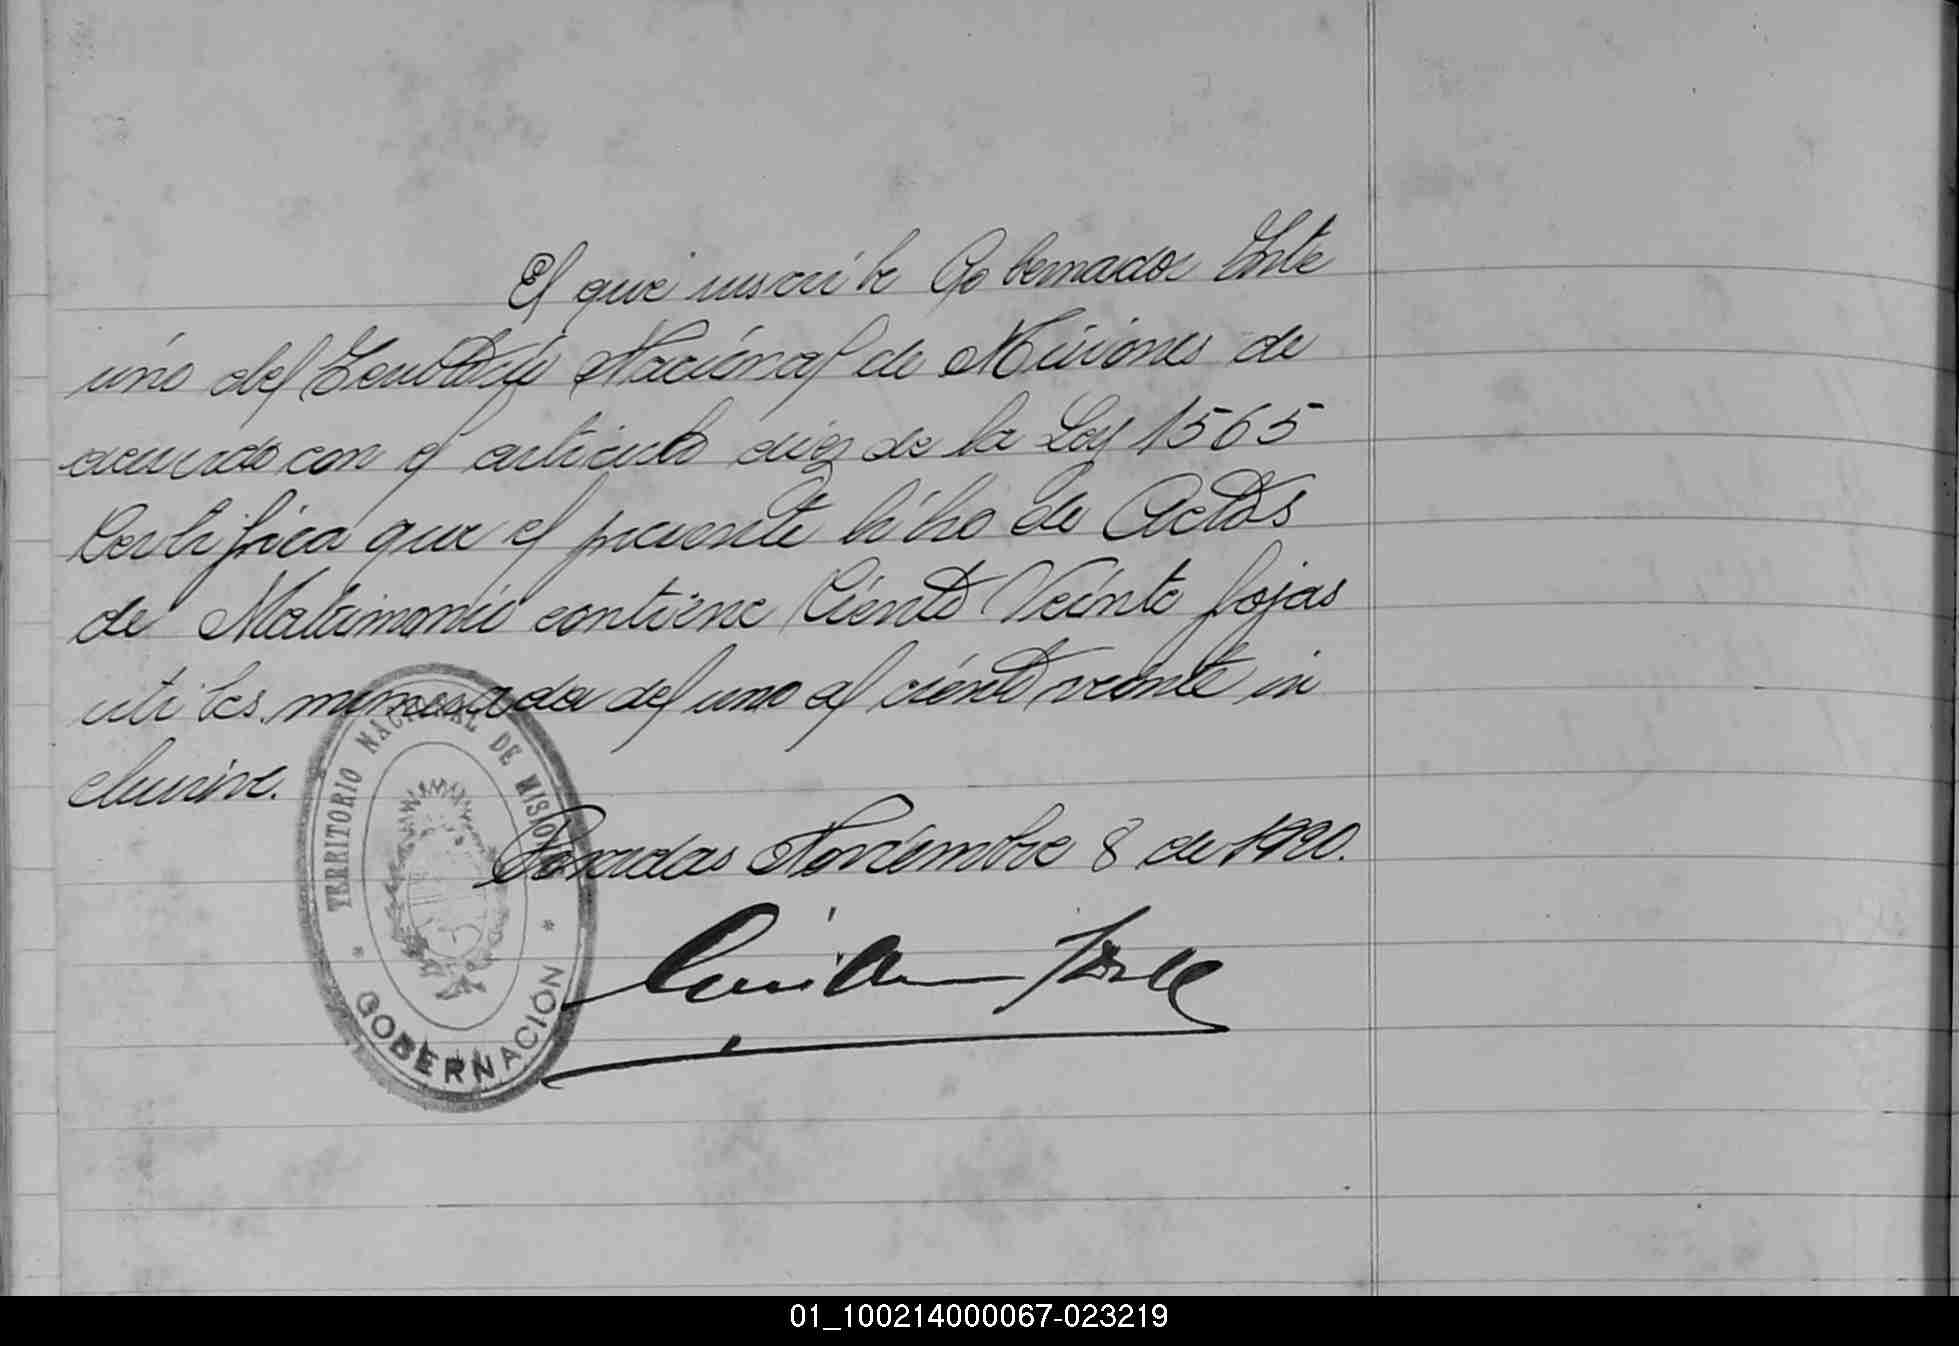 El que suscribe Gobernador Inte
rino del Territorio Nacional de Misiones de
acuerdo con el articulo diez de la Ley 1565
Certifica que el presente libro de Actas
de Matrimonio contiene Ciento Veinte fojas
utiles numerada del uno al ciento veinte in
clusive.
Posadas Noviembre 8 de 1920.
TERRITORIO NACIONAL DE MISIONES
* GOBERNACIÓN *
01_100214000067-023219